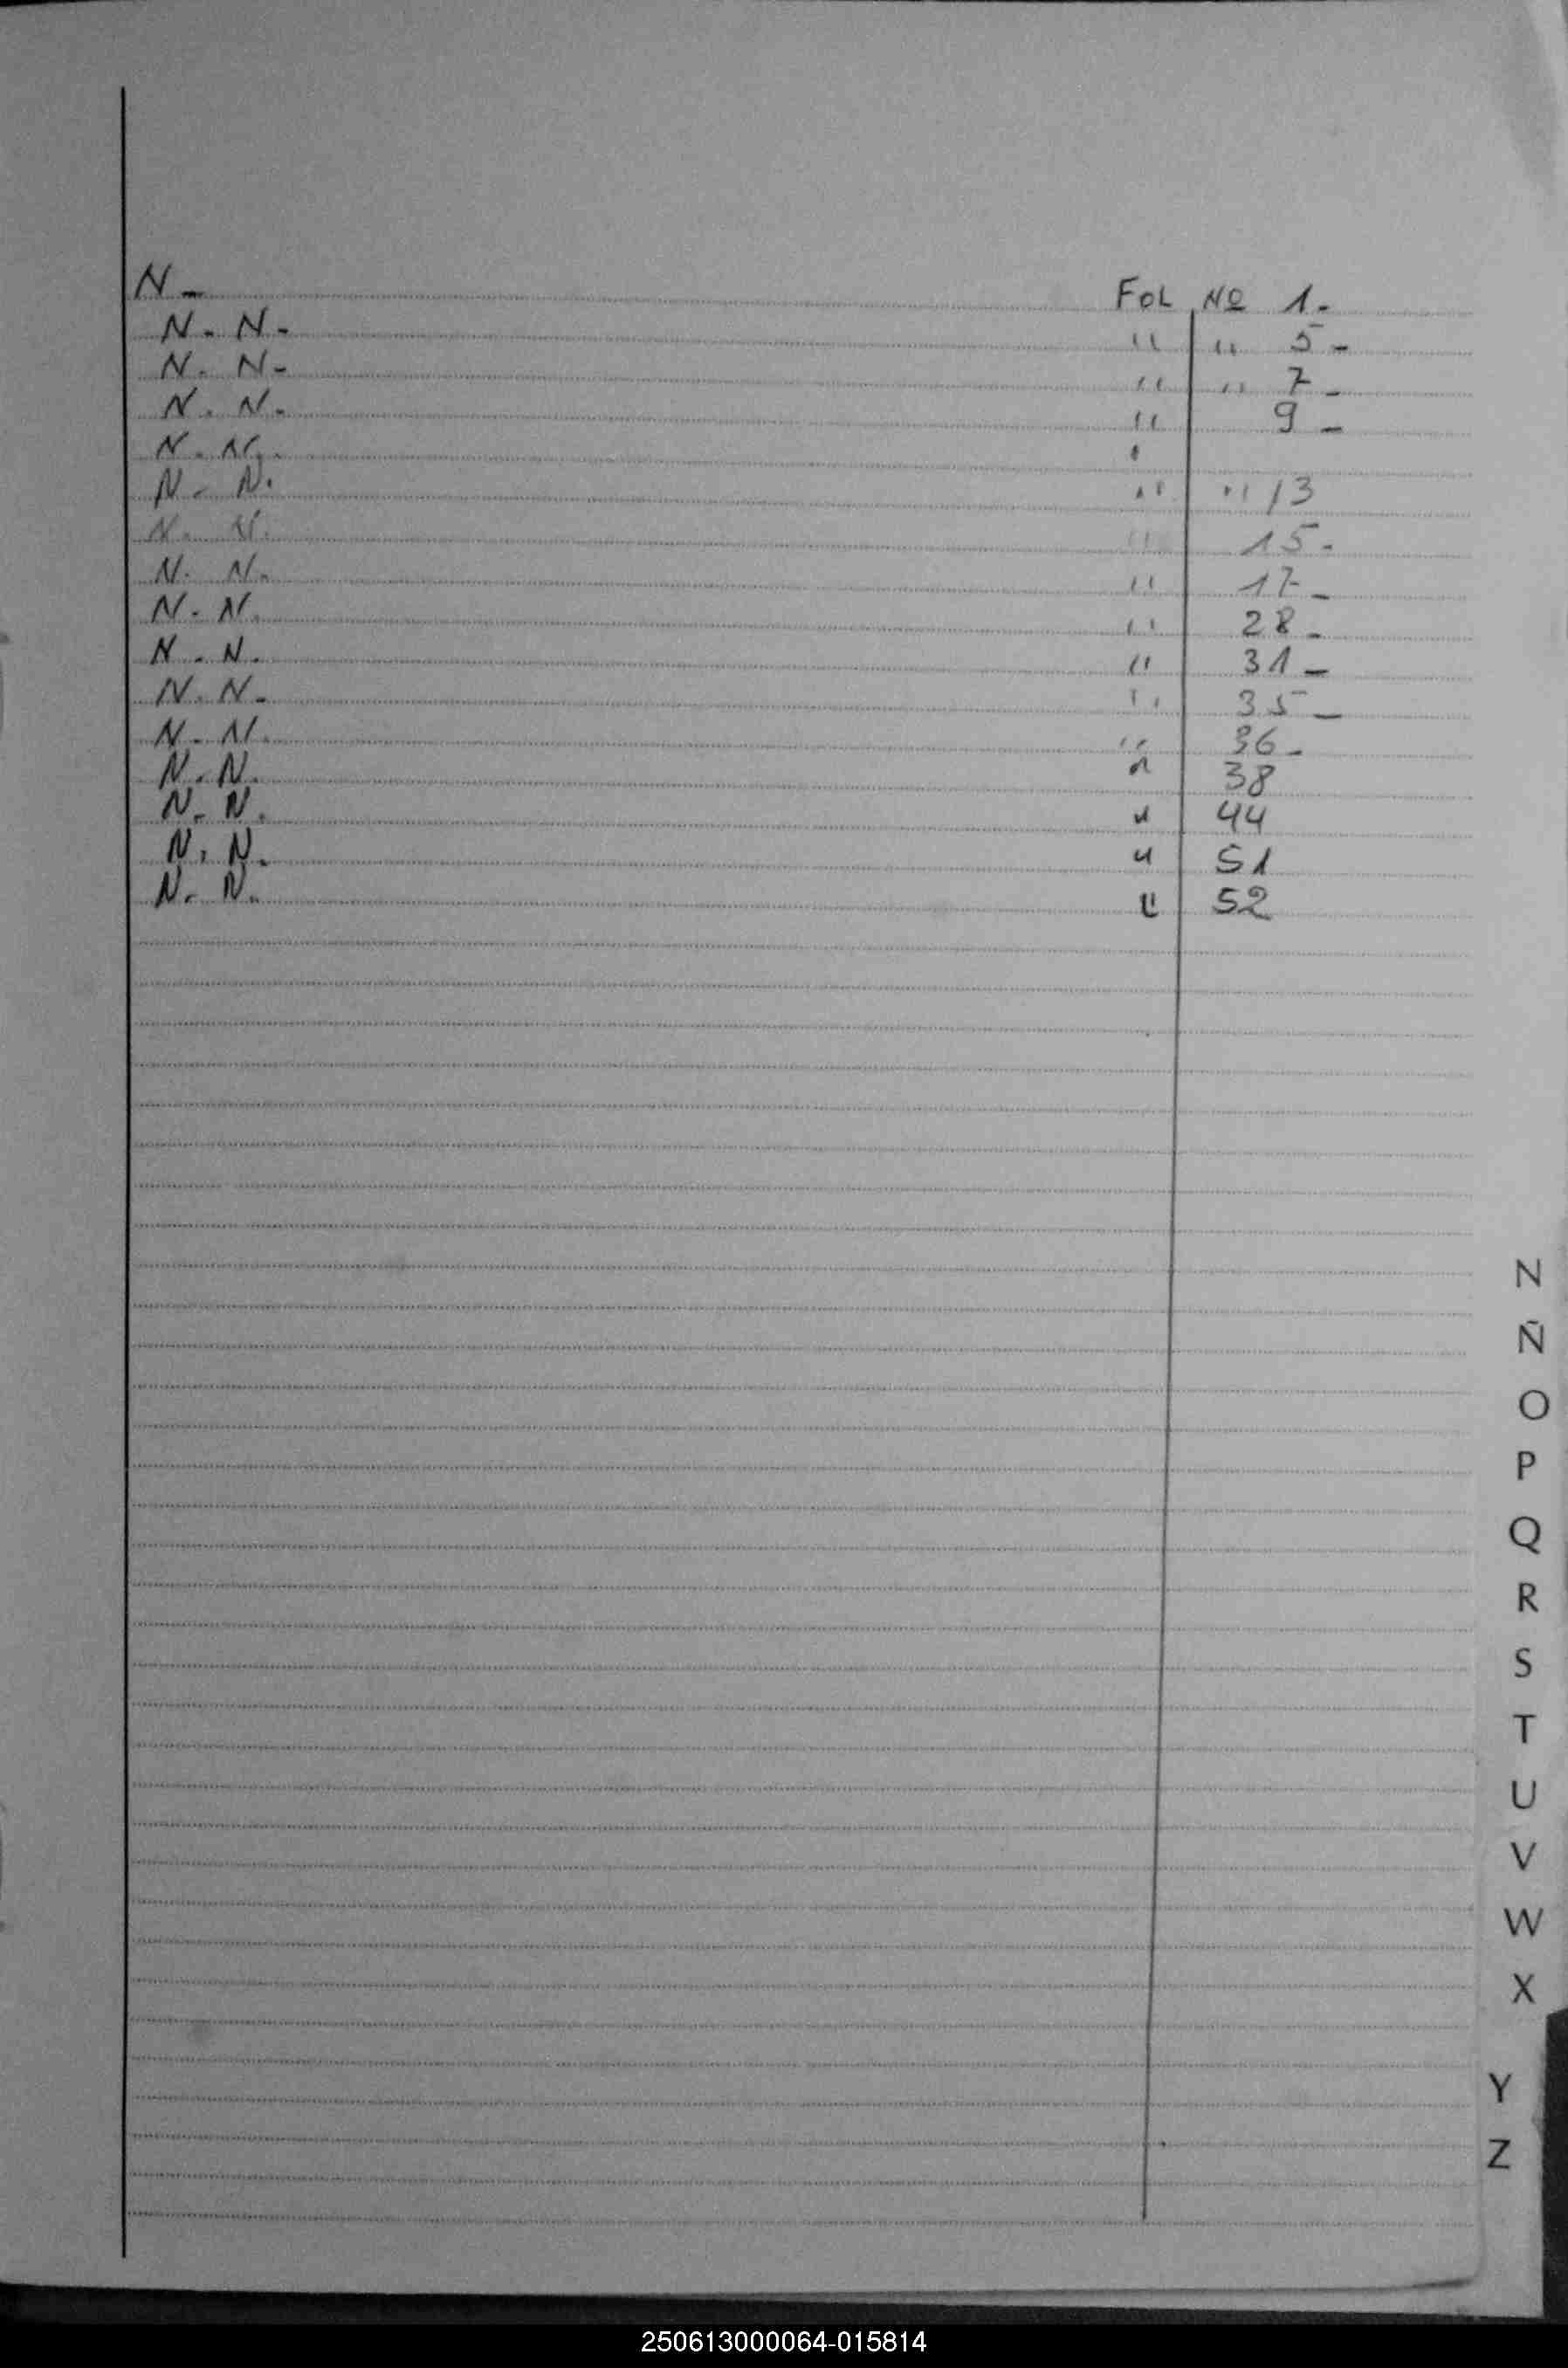 N - FOL Nº 1.-
N. N. - " " 5 -
N. N. - " " 7 -
N. N. - " 9 -
N. N. . '
N. N. " " 13
N. N. " 15 -
N. N. " 17 -
N. N. " 28 -
N. N. " 31 -
N. N. - " 35 -
N. N. " 36 -
N. N. " 38
N. N. " 44
N. N. " 51
N. N. " 52
N
Ñ
O
P
Q
R
S
T
U
V
W
X
Y
Z
250613000064-015814